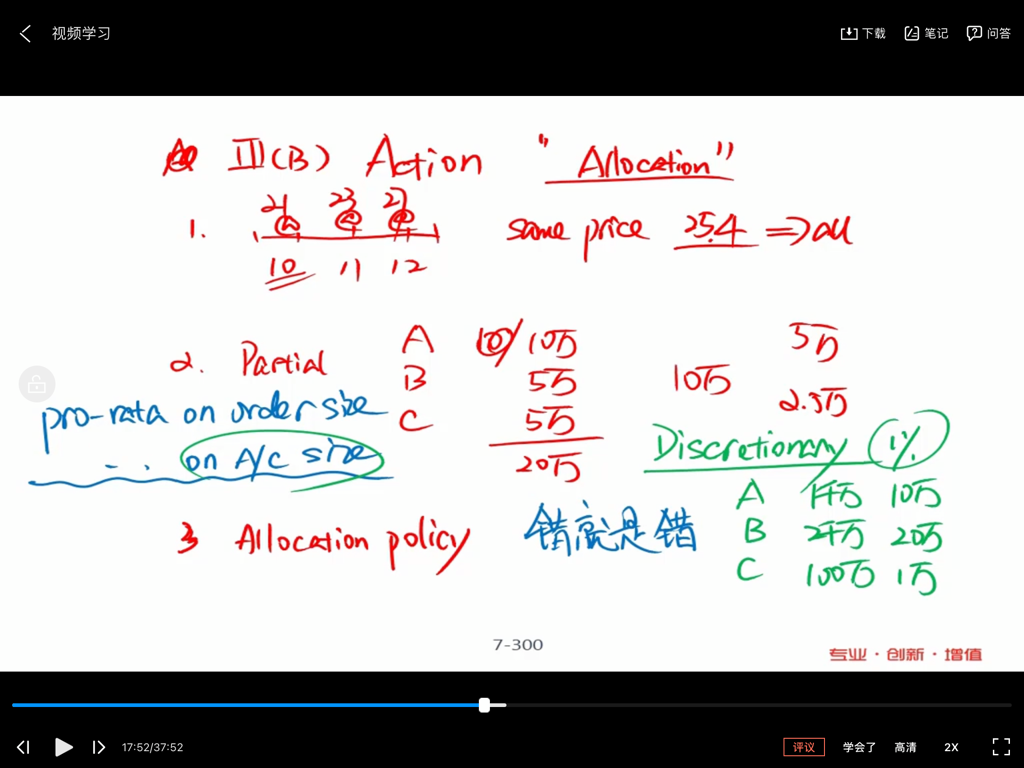 视频学习 下载 笔记 问答
III(B) Action "Allocation"
21 23 27
1. same price 25.4 => all
10 11 12
A 10万 5万
2. Partial B 5万 10万 2.5万
pro-rata on order size C 5万
.. on A/C size 20万
Discretionary 1%
A 1千万 10万
B 2千万 20万
C 100万 1万
3 Allocation policy 错就是错
7-300
专业·创新·增值
17:52/37:52 评议 学会了 高清 2X